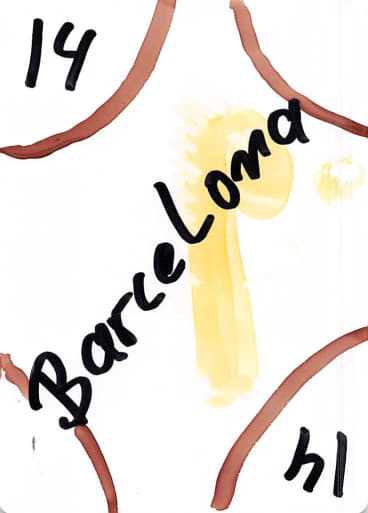 14
Barcelona
14